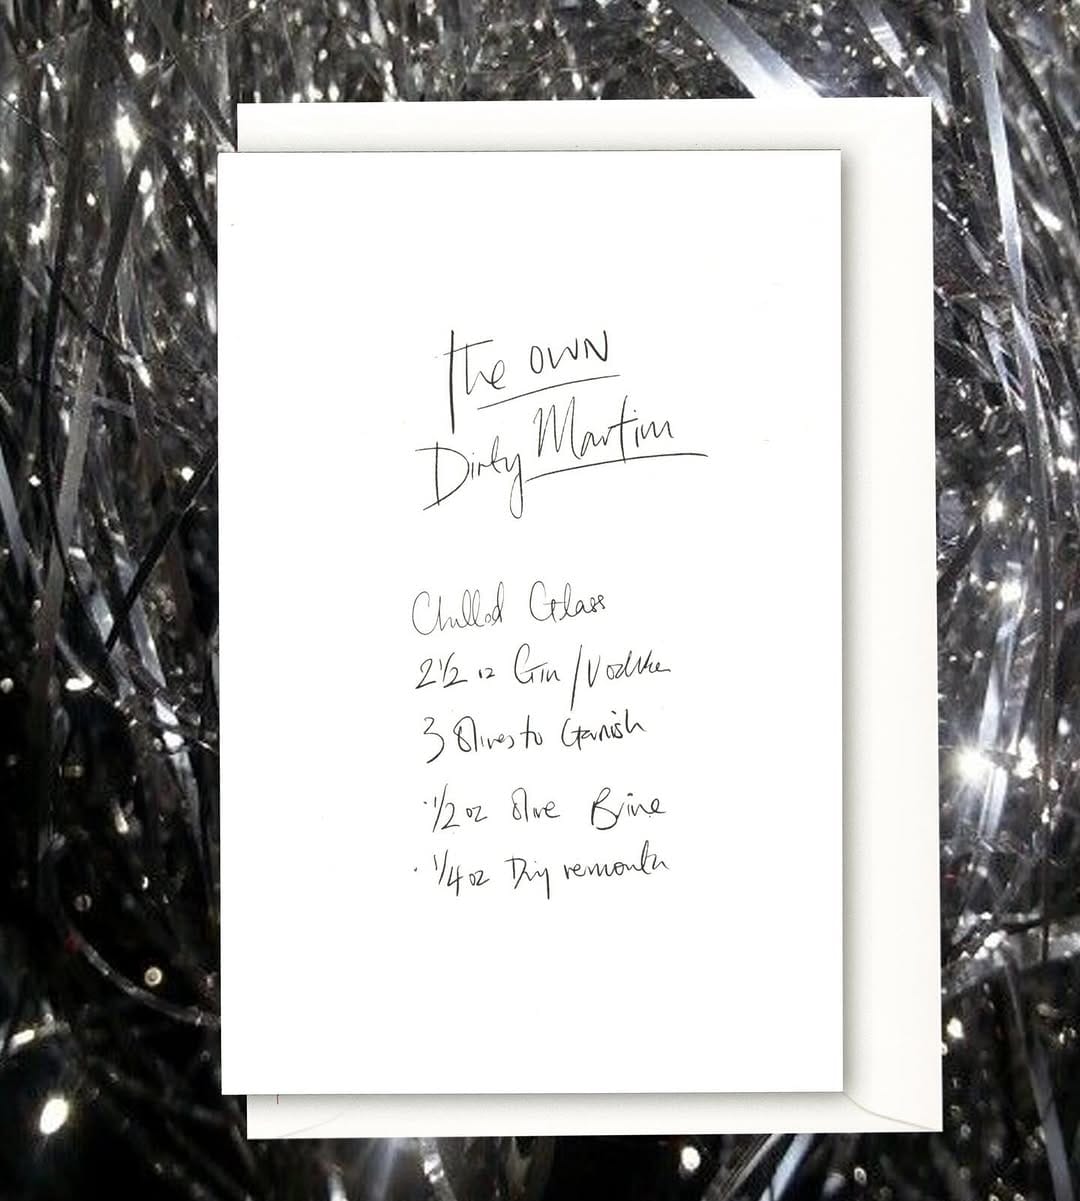 The OWN
Dirty Martini
Chilled Glass
2 1/2 oz Gin / Vodka
3 Olives to Garnish
· 1/2 oz Olive Brine
· 1/4 oz Dry vermouth